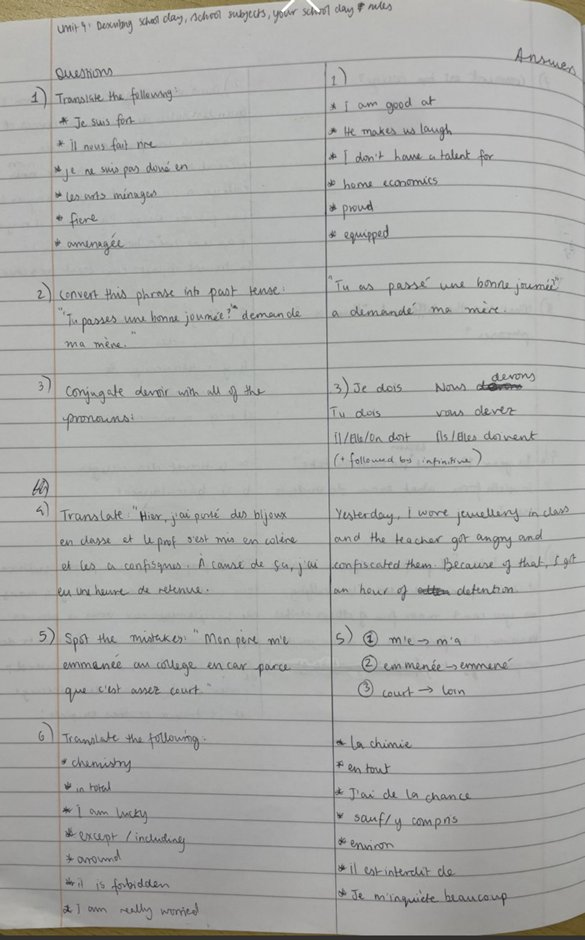 Unit 4: Describing school day, school subjects, your school day & rules
Questions
Answers
1) Translate the following:
* Je suis fort
* Il nous fait rire
* je ne suis pas doué en
* Les arts ménages
* fiere
* aménagée
1)
* I am good at
* He makes us laugh
* I don't have a talent for
* home economics
* proud
* equipped
2) Convert this phrase into past tense:
"Tu passes une bonne journée?" demande
ma mère."
"Tu as passé une bonne journée"
a demandé ma mère.
3) Conjugate devoir with all of the
pronouns:
3) Je dois Nous devons
Tu dois vous devez
Il/Elle/On doit Ils/Elles doivent
(+ followed by infinitive)
4) Translate: "Hier, j'ai porté des bijoux
en classe et le prof s'est mis en colère
et les a confisqués. À cause de ça, j'ai
eu une heure de retenue.
Yesterday, I wore jewellery in class
and the teacher got angry and
confiscated them. Because of that, I got
an hour of detention.
5) Spot the mistakes: "Mon père m'e
emmenée au college en car parce
que c'est assez court."
5) ① m'e → m'a
② emmenée → emmené
③ court → loin
6) Translate the following:
* chemistry
* in total
* I am lucky
* except / including
* around
* it is forbidden
* I am really worried
* La chimie
* en tout
* J'ai de la chance
* sauf/y compris
* environ
* il est interdit de
* Je m'inquiète beaucoup